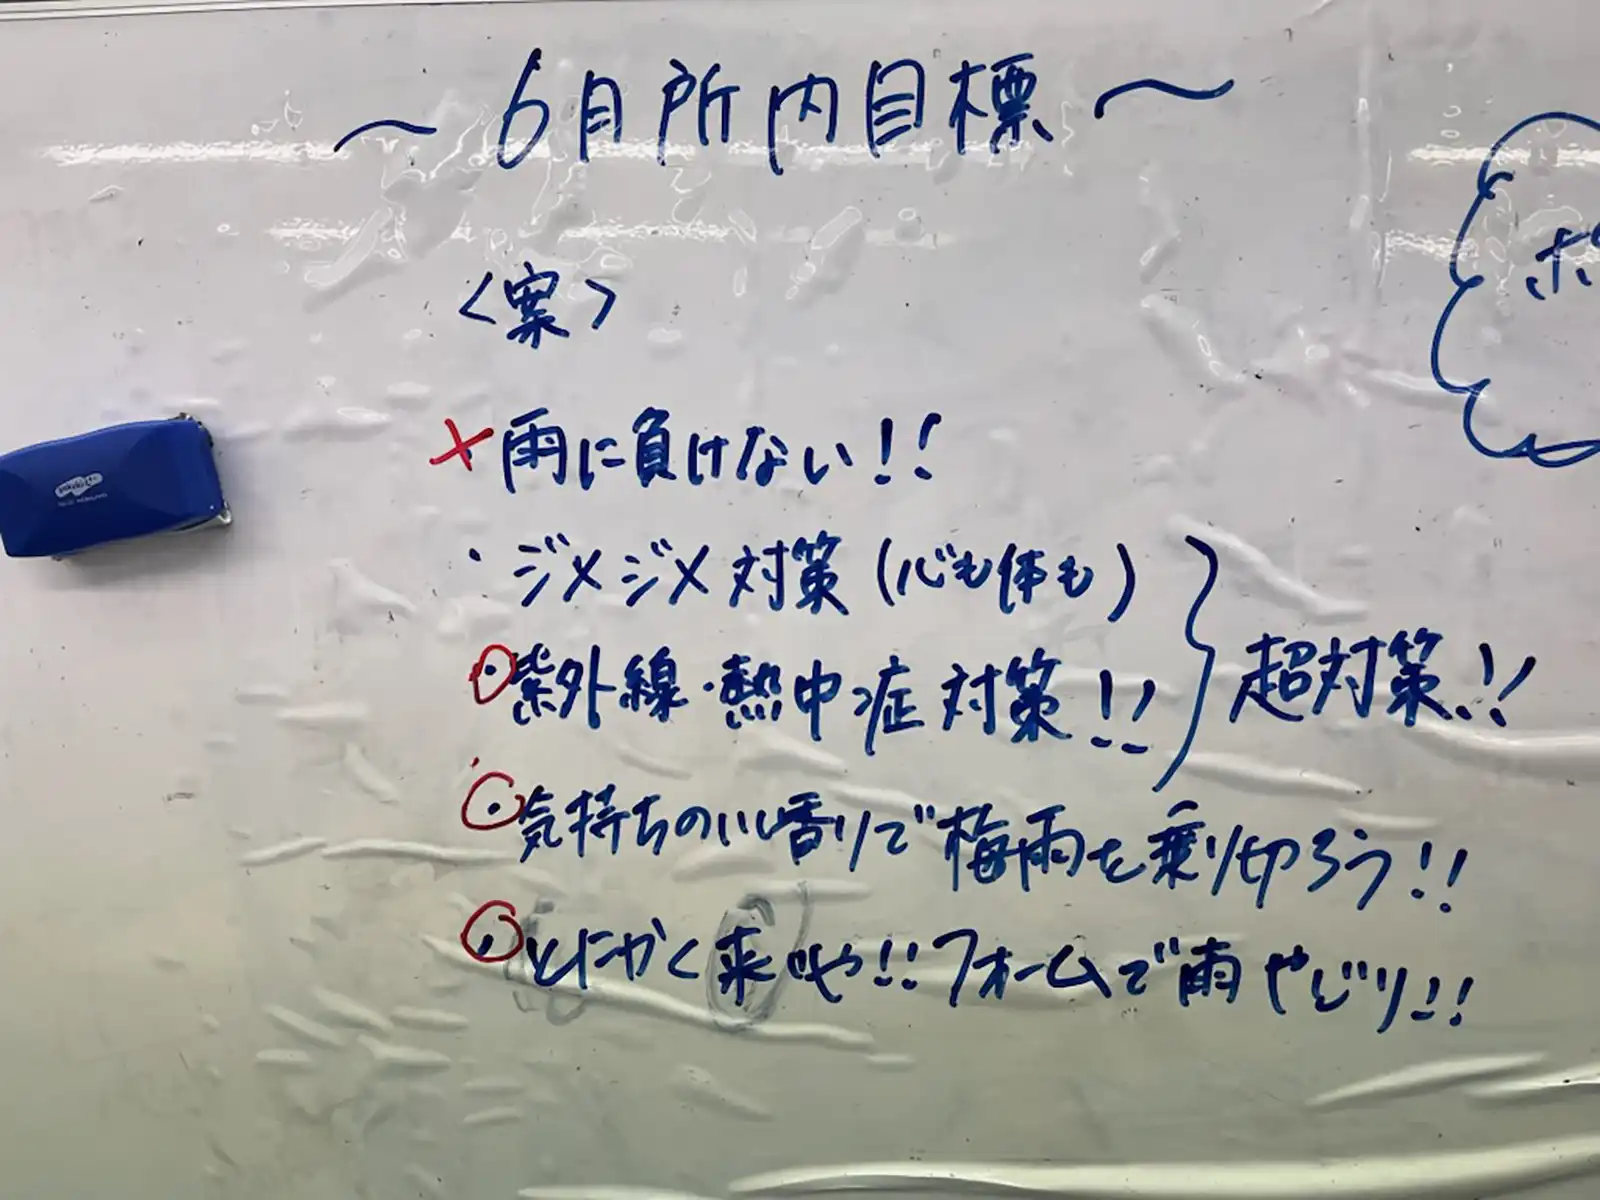 〜6月所内目標〜
<案>
×雨に負けない!!
・ジメジメ対策(心も体も)
・紫外線・熱中症対策!!
超対策!!
・気持ちのいい香りで梅雨を乗り切ろう!!
・とにかく来いや!!フォームで雨やどり!!
ポ